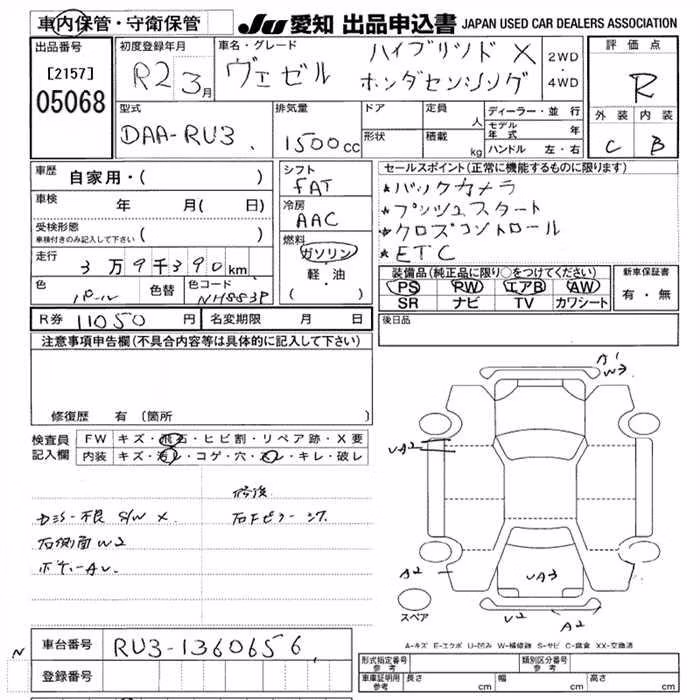 車内保管・守衛保管
JU 愛知 出品申込書 JAPAN USED CAR DEALERS ASSOCIATION
出品番号
[2157]
05068
初度登録年月
R2 3月
車名・グレード
ヴェゼル
ハイブリッド X
ホンダセンシング
2WD
・
4WD
評価点
R
外装 内装
C B
型式
DAA-RU3
排気量
1500cc
ドア
形状
定員 人
積載 kg
ディーラー・並行
モデル年式 年
ハンドル 左・右
車歴 自家用・( )
車検 年 月( 日)
受検形態
車検付きのみ記入して下さい ( )
走行
3万9千390km
色 パール 色替 色コード NH883P
シフト
FAT
冷房
AAC
燃料
ガソリン
・
軽・油
( )
セールスポイント(正常に機能するものに限ります)
★バックカメラ
★プッシュスタート
★クロズコントロール
★ETC
装備品(純正品に限り○をつけてください)
PS PW エアB AW
SR ナビ TV カワシート
新車保証書
有・無
R券 11050円 名変期限 月 日
後日品
注意事項申告欄(不具合内容等は具体的に記入して下さい)
修復歴 有 (箇所 )
検査員
記入欄
FW キズ・飛石・ヒビ割・リペア跡・X要
内装 キズ・汚レ・コゲ・穴・スレ・キレ・破レ
カミラー不良 S/W X
右側面W2
ボデーAU
修復
右Fピラー
A1
W3
UA2
A2
UA3
U2
A2
スペア
A-キズ E-エクボ U-凹み W-補修跡 S-サビ C-腐食 XX-交換済
N
車台番号 RU3-1360656
登録番号
形式指定番号
参考
類別区分番号
参考
車庫証明用
参考
長さ cm 幅 cm 高さ cm